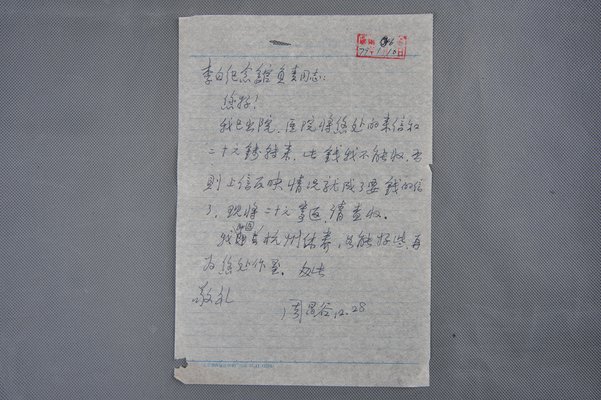 李白纪念馆负责同志:
您好!
我已出院,医院将您处的来信和
二十元转来,此钱我不能收,否
则上信反映情况就成了要钱的信
了,现将二十元寄返,请查收。
我回杭州休养,只能好些,再
为您处作画。致
敬礼
周昌谷 12.28